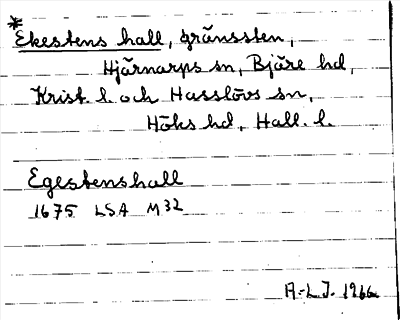 *Ekestens hall, gränssten,
Hjärnarps sn, Bjäre hd,
Krist. l. och Hasslövs sn,
Höks hd, Hall. l.
Egestenshall
1675 LSA M32
A-L J. 1966